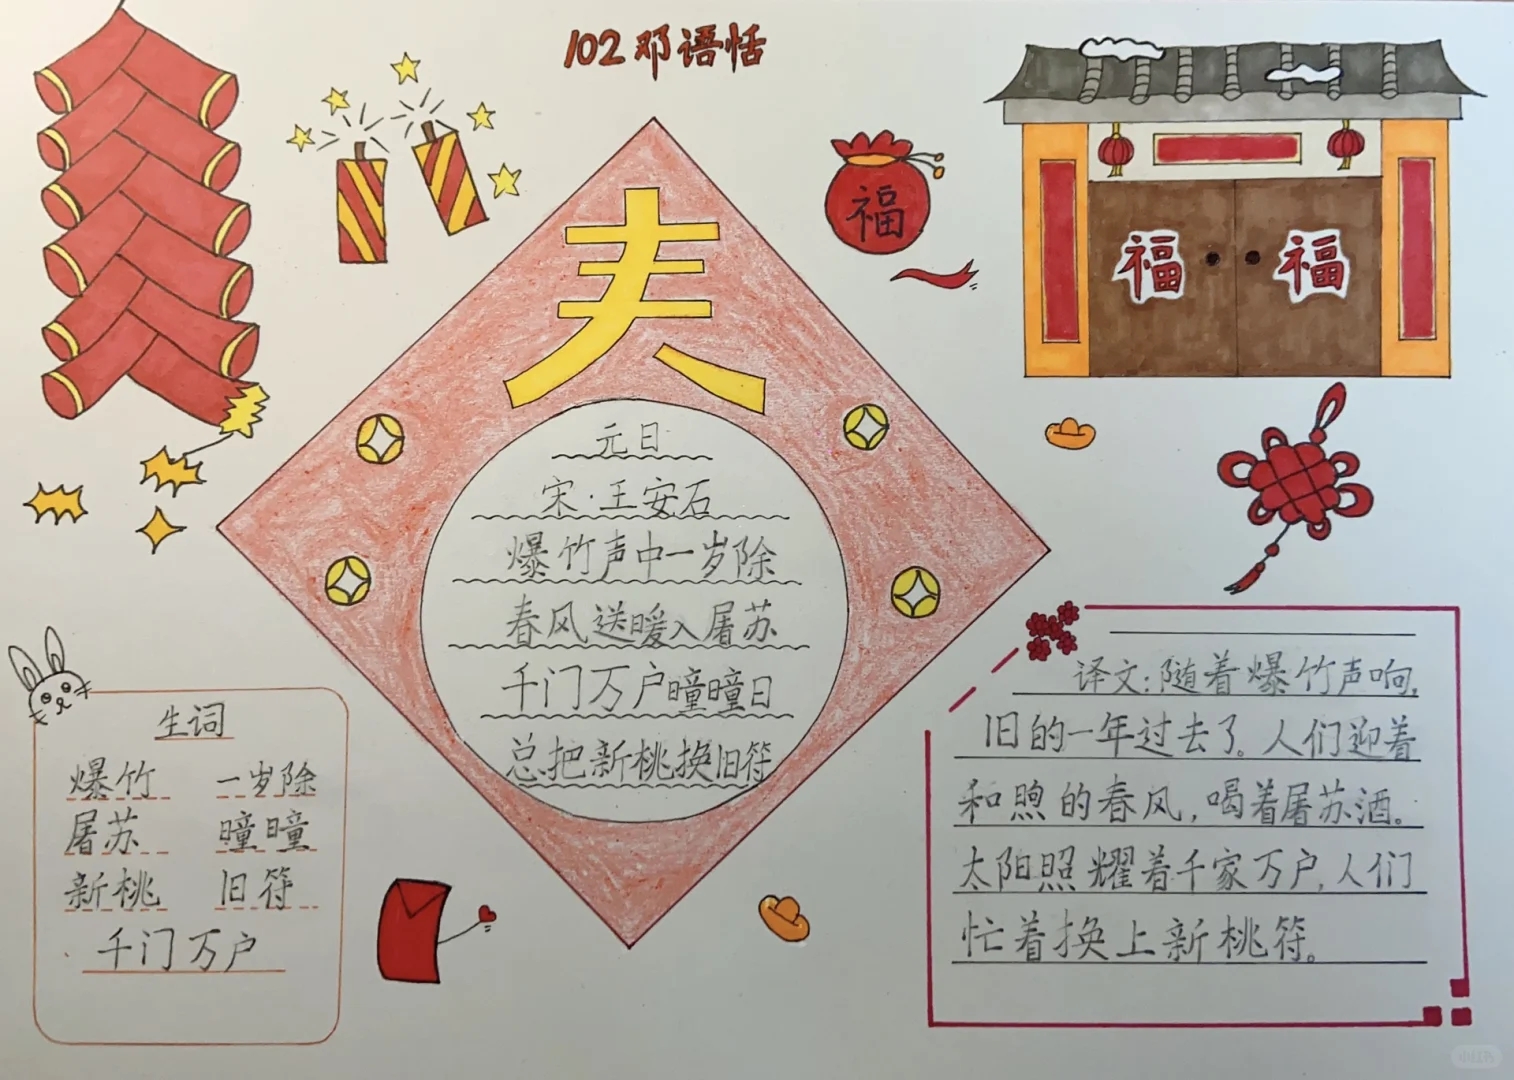 102 邓语恬
福
福 福
元日
宋·王安石
爆竹声中一岁除
春风送暖入屠苏
千门万户曈曈日
总把新桃换旧符
生词
爆竹 一岁除
屠苏 曈曈
新桃 旧符
千门万户
译文:随着爆竹声响,
旧的一年过去了。人们迎着
和煦的春风,喝着屠苏酒。
太阳照耀着千家万户,人们
忙着换上新桃符。
小红书